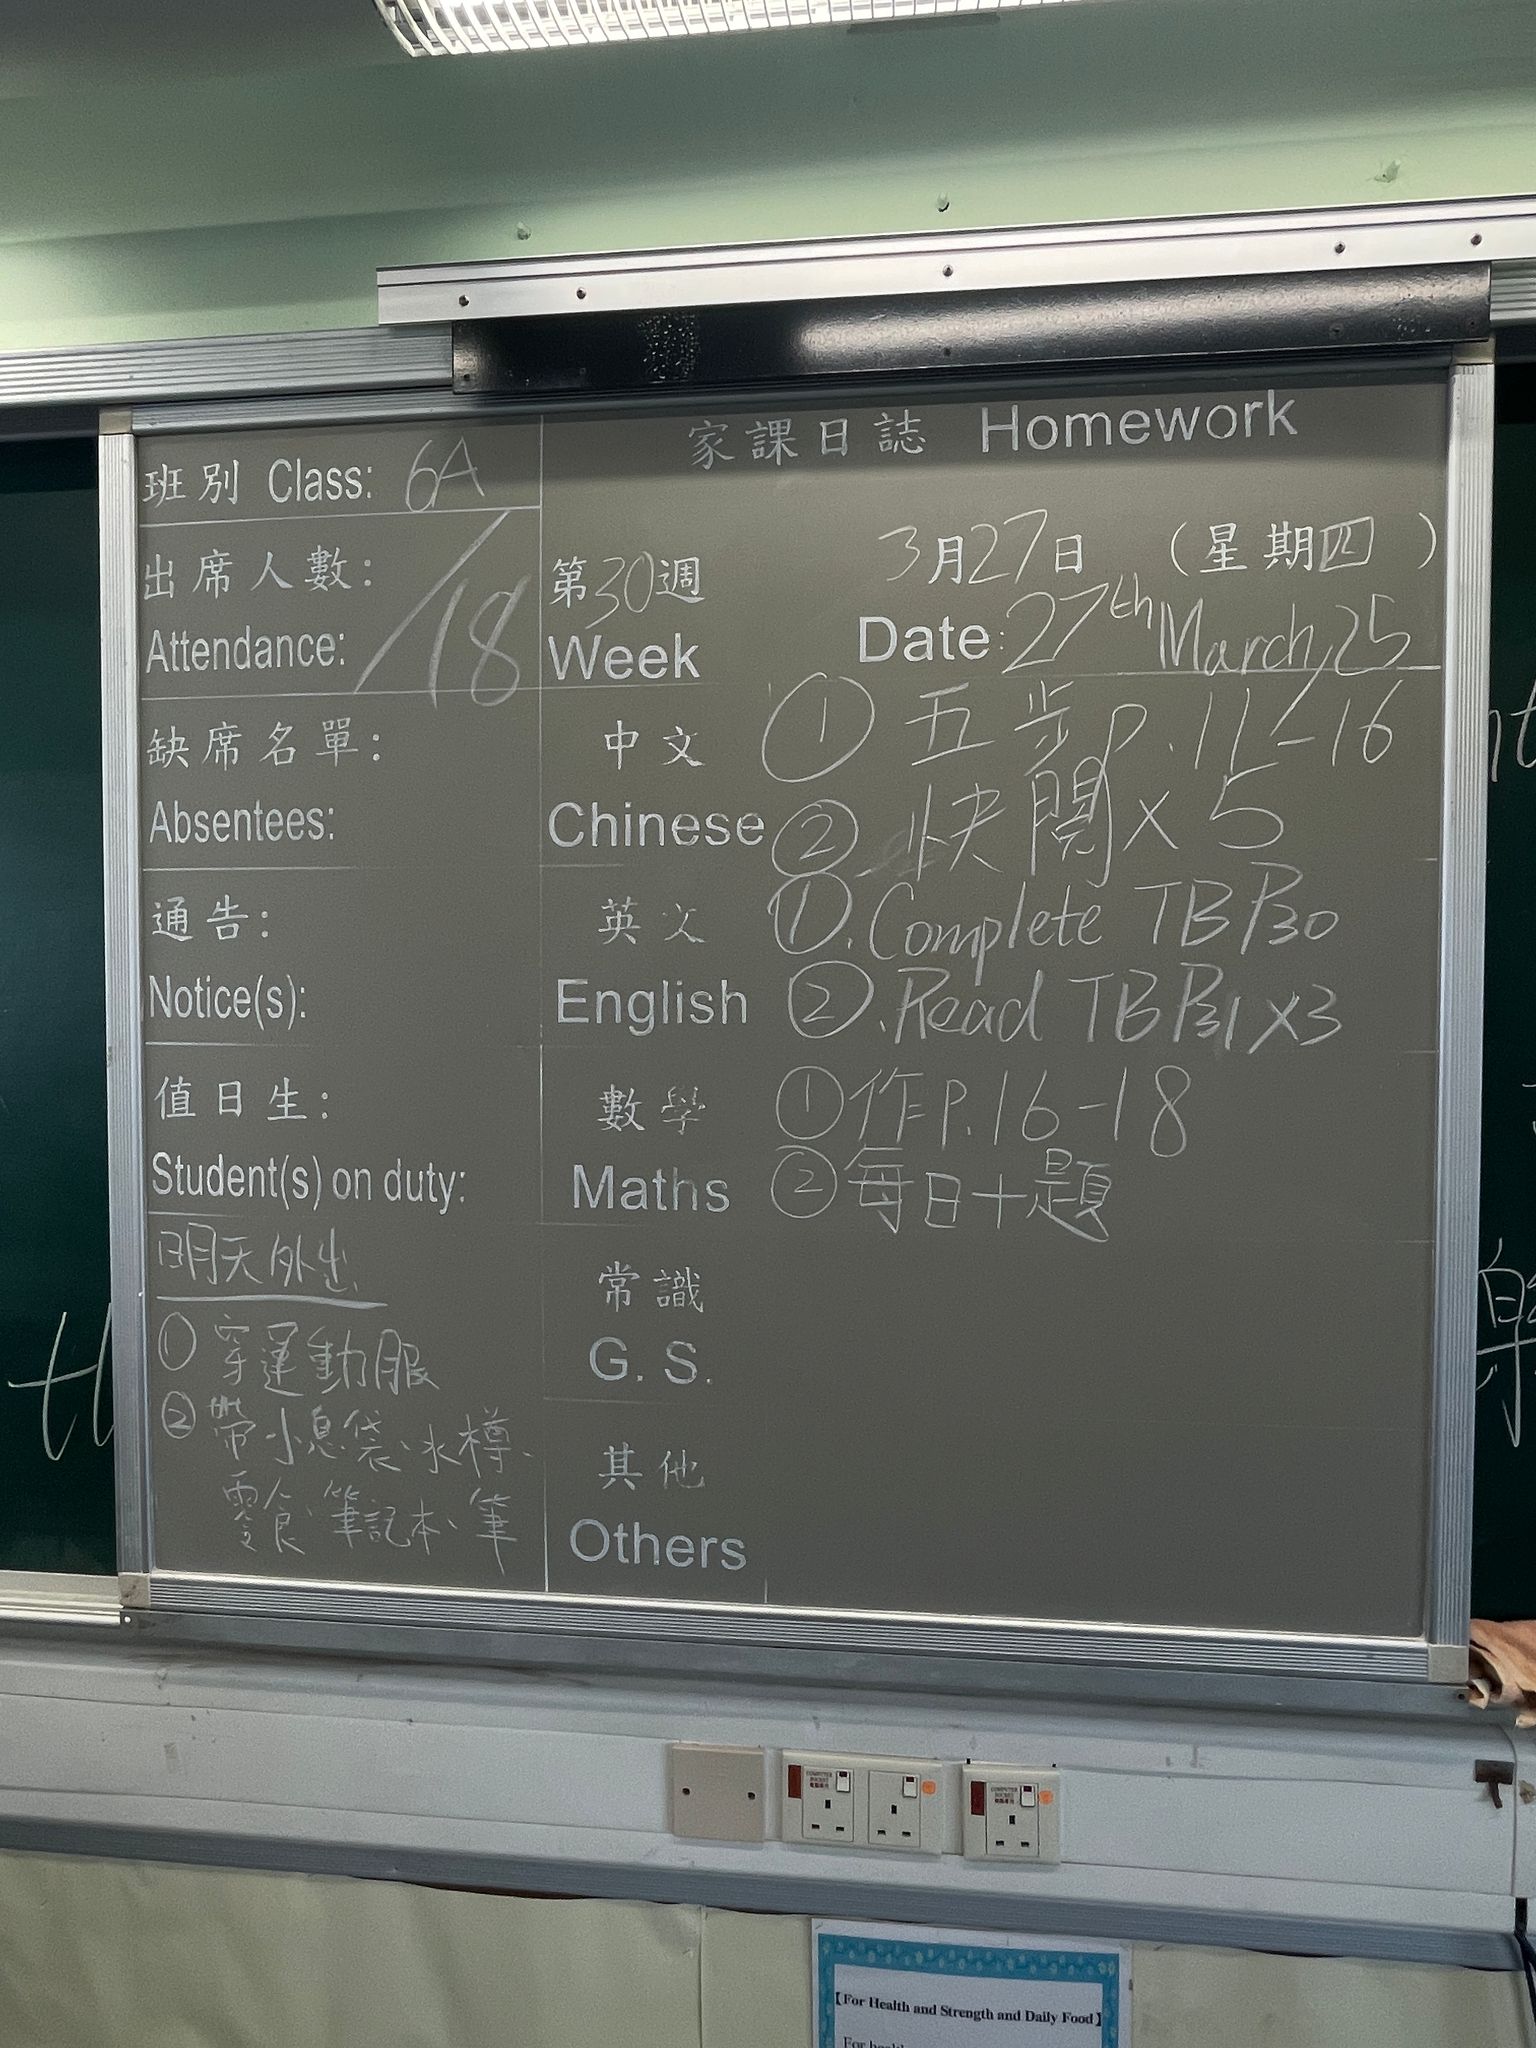 家課日誌 Homework
班別 Class: 6A
出席人數:
Attendance: /18
第30週
Week
3月27日 (星期四)
Date: 27th March, 25
缺席名單:
Absentees:
通告:
Notice(s):
值日生:
Student(s) on duty:
明天外出
① 穿運動服
② 帶小息袋、水樽、
零食、筆記本、筆
中文
Chinese
① 五步 P.11-16
② 快閱 x 5
英文
English
①. Complete TB P30
②. Read TB P31 x3
數學
Maths
① 作 P.16-18
② 每日十題
常識
G. S.
其他
Others
COMPUTER
SOCKET
COMPUTER
SOCKET
【For Health and Strength and Daily Food】